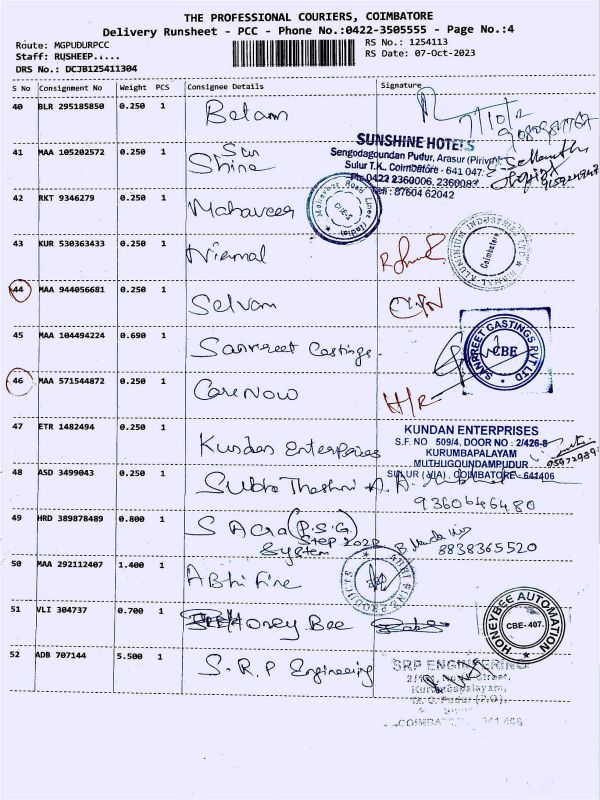 THE PROFESSIONAL COURIERS, COIMBATORE
Delivery Runsheet - PCC - Phone No.:0422-3505555 - Page No.:4
Route: MGPUDURPCC
RS No.: 1254113
Staff: RUSHEEP.....
RS Date: 07-Oct-2023
DRS No.: DCJB125411304
S No Consignment No Weight PCS Consignee Details Signature
40 BLR 295185850 0.250 1
41 MAA 105202572 0.250 1 Sun Shine
SUNSHINE HOTELS
Sengodagoundan Pudur, Arasur (Pirivu)
Sulur T.K., Coimbatore - 641 047
Ph 0422 2360006, 2360083
Cell : 87604 62042
42 RKT 9346279 0.250 1 Mahaveer
43 KUR 530363433 0.250 1 Nirmal
44 MAA 944056681 0.250 1 Selvam
45 MAA 104494224 0.690 1 Sanpreet Castings.
SANPREET CASTINGS PVT LTD
CBE
46 MAA 571544872 0.250 1 CareNow
47 ETR 1482494 0.250 1 Kundan Enterprises
KUNDAN ENTERPRISES
S.F. NO 509/4, DOOR NO : 2/426-8
KURUMBAPALAYAM
MUTHUGOUNDAMPUDUR
SULUR (VIA), COIMBATORE - 641406
48 ASD 3499043 0.250 1 Subha
9360646480
49 HRD 389878489 0.800 1 (P.S.G) Step System
8838365520
50 MAA 292112407 1.400 1 Abhi Fine
ABHI FINE PRODUCTS
51 VLI 304737 0.700 1 Honey Bee
HONEYBEE AUTOMATION
CBE-407.
52 ADB 707144 5.500 1 S.R.P Engineering
SRP ENGINEERING
Kurumbapalayam,